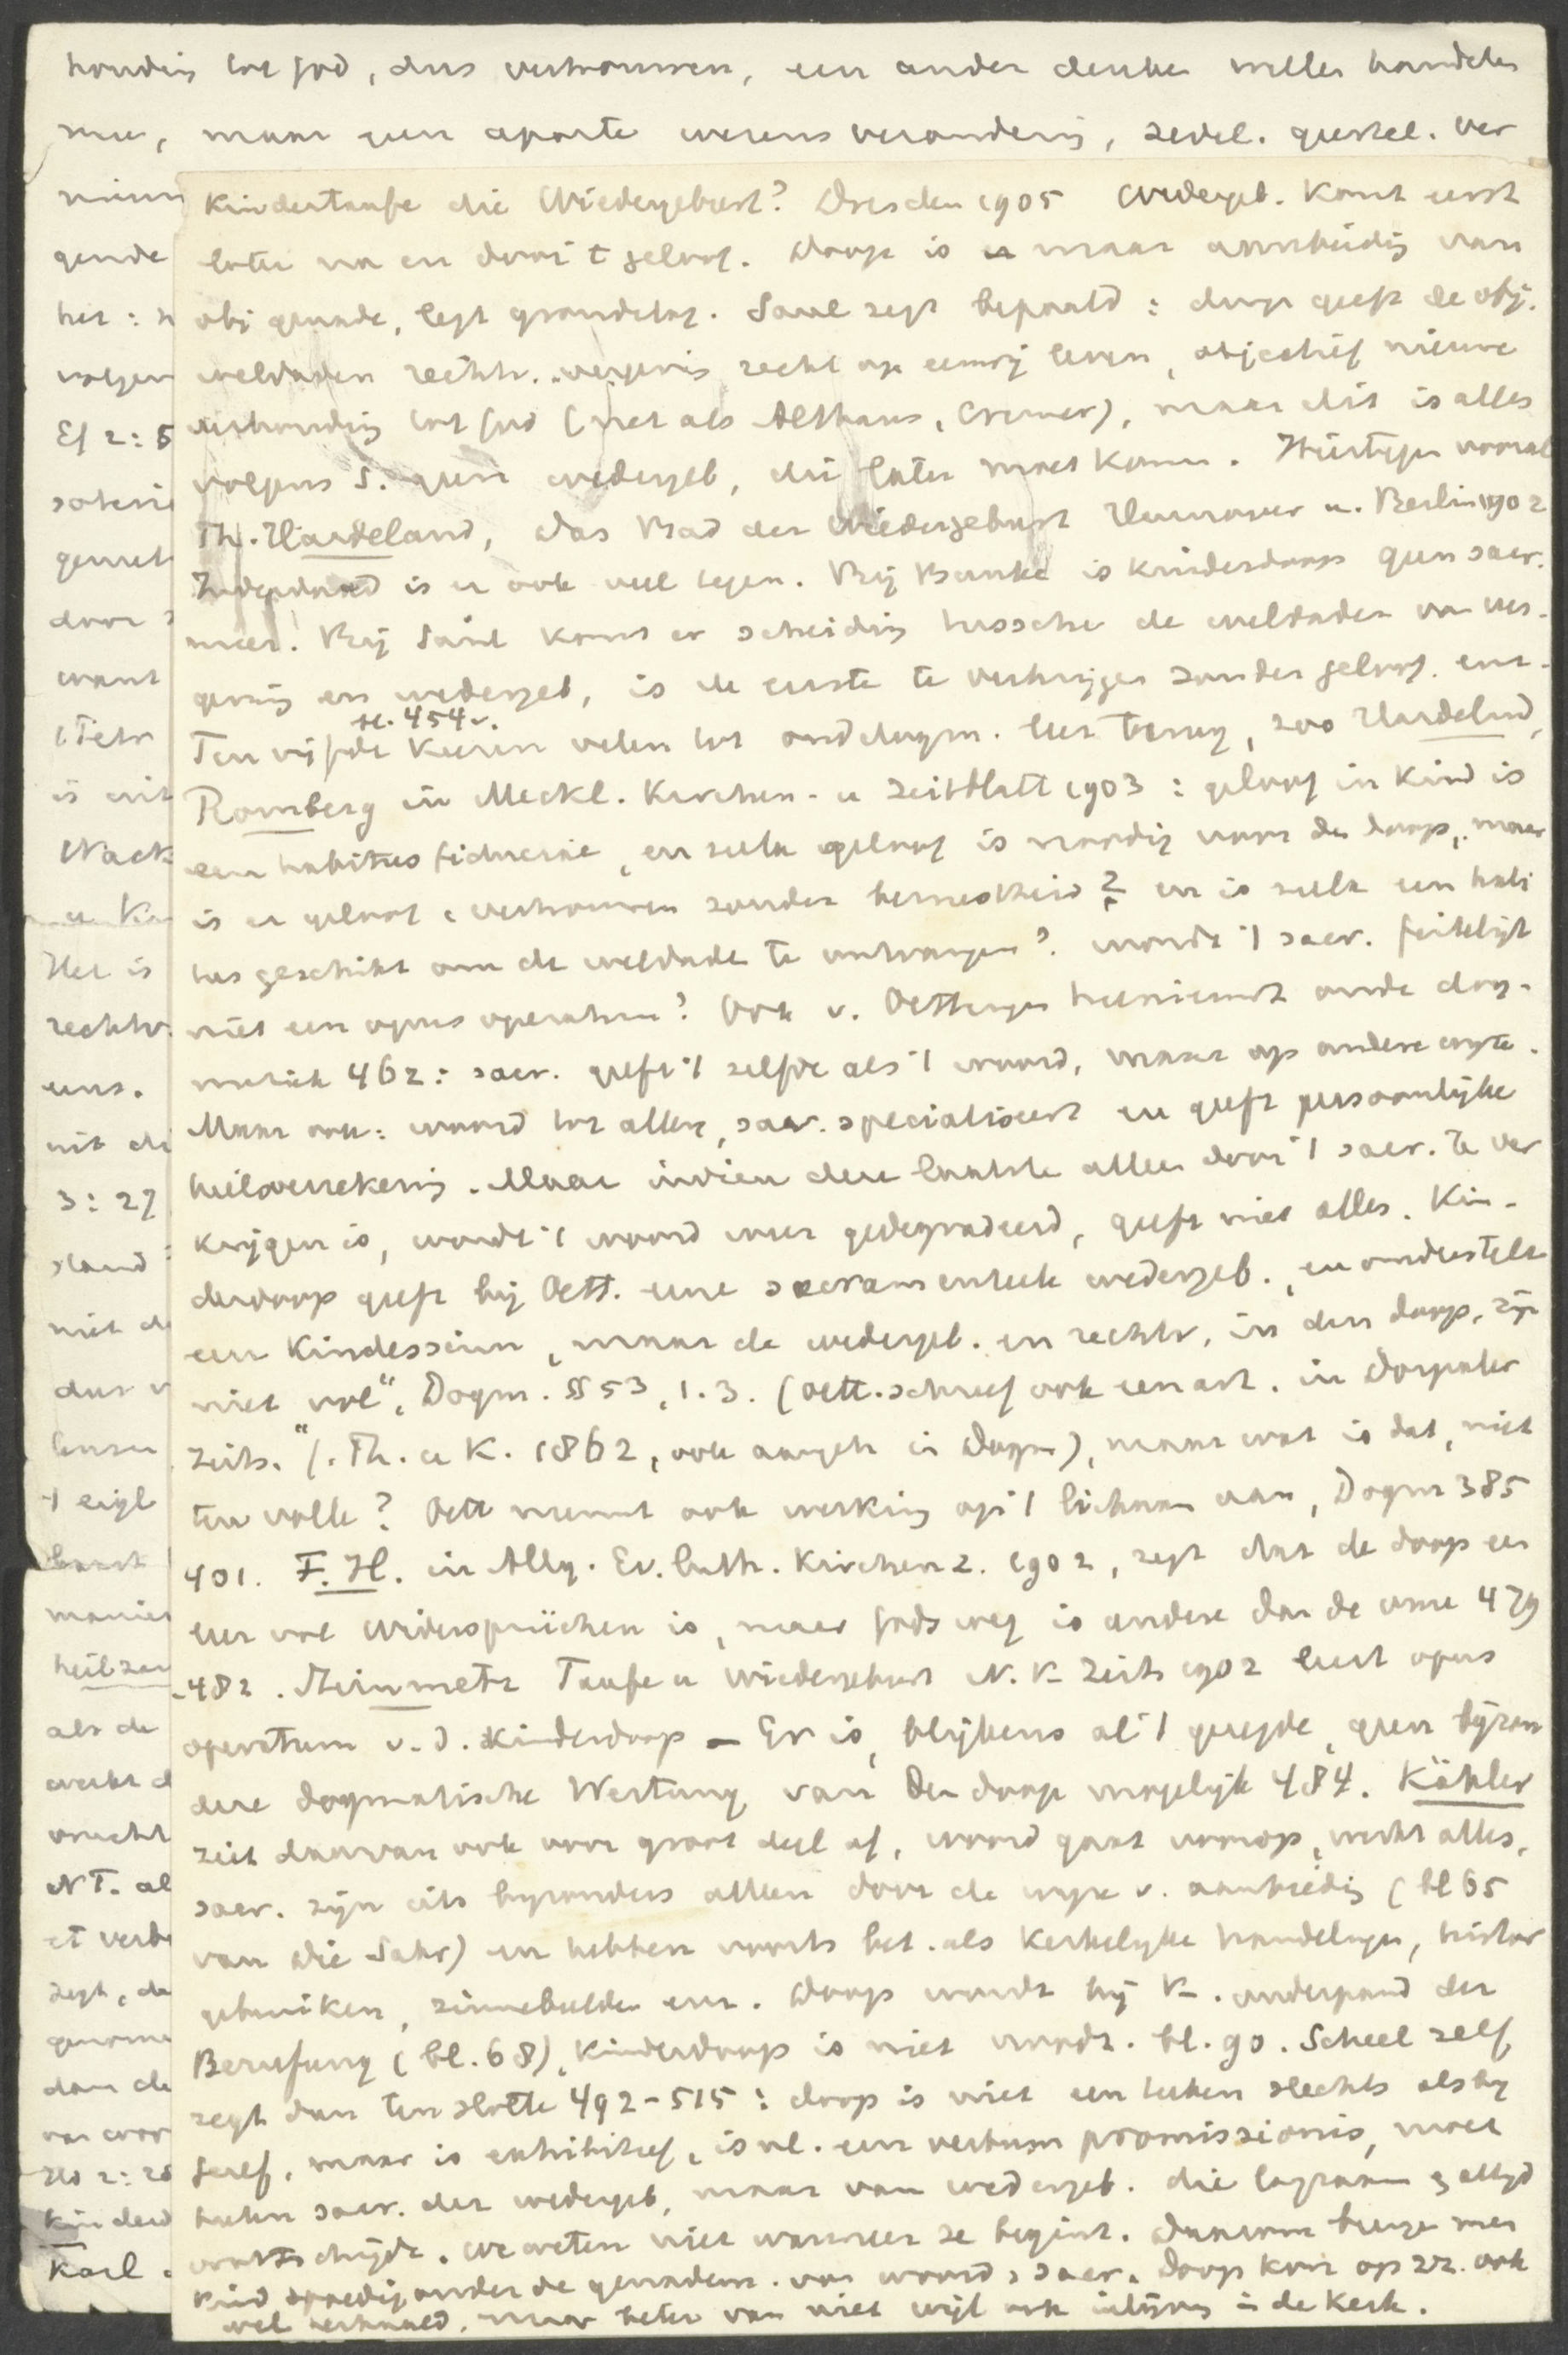 houding tot God, dus vertrouwen, een ander denken willen handelen
enz, maar geen aparte wezensverandering, zedel. geestel. ver
nieuw
gende
het :
volgen
Ef 2:5
soterie
gerech
door
want
(Tetr
is uit
Nack
u. Ka
Het is
rechtv.
eens.
uit di
3:27
stand
niet de
dus v
lusu
't eigl
komt
manier
heilzam
als de
werkt d
vrucht
NT. al
et verb
zegt, da
genome
dan de
van voor
Hd 2:28
kinderd
Karl
Kindertaufe die Wiedergeburt? Dresden 1905 Wedergeb. komt eerst
later na en door 't geloof. Doop is er maar aanbieding van
obj genade, legt grondslag. Saul zegt bepaald : doop geeft de obj.
weldaden rechtv. vergeving recht op eeuwig leven, objectief nieuwe
verhouding tot God (net als Althaus, Cremer), maar dit is alles
volgens S. geen wedergeb, die later moet komen. Hiertegen vooral
Th. Hardeland, Das Bad der Wiedergeburt Hannover u. Berlin 1902
Inderdaad is er ook veel tegen. Bij Bunke is kinderdoop geen sacr.
meer. Bij Saul komt er scheiding tussche de weldaden van ver-
geving en wedergeb, is de eerste te verkrijgen zonder geloof. enz.
Ten vijfde bl. 454 v. keeren velen tot oud dogm. leer terug, zoo Hardelnd,
Romberg in Meckl. Kirchen- u Zeitblatt 1903 : geloof in kind is
een habitus fiduciae, en zulk geloof is noodig voor den doop, maar
is er geloof = vertrouwen zonder bewustheid ? en is zulk een habi
tus geschikt om de weldade te ontvangen? wordt 't sacr. feitelijk
niet een opus operatum? Ook v. Oettingen herniemt oude dog-
matiek 462 : sacr. geeft 't zelfde als 't woord, maar op andere wijze.
Maar ook : woord tot allen, sacr. specialiseert en geeft persoonlijke
heilsverzekering. Maar indien deze laatste alleen door 't sacr. te ver
krijgen is, wordt 't woord weer gedegradeerd, geeft niet alles. Kin-
derdoop geeft bij Oett. eene sacramenteele wedergeb., en onderstelt
een Kindessinn, maar de wedergeb. en rechtv. in den doop, zijn
niet vol", Dogm. §§ 53, 1.3. (Oett. schreef ook een art. in Dorpater
Zeits. f. Th. u K. 1862, ook aangeh in Dogm), maar wat is dat, niet
ten volle? Oett neemt ook werking op 't lichaam aan, Dogm 385
401. F. H. in Allg. Ev. luth. Kirchenz. 1902, zegt dat de doop een
leer vol Widersprüchen is, maar Gods weg is andere dan de onze 479
-482. Steinmetz Taufe u Wiedergeburt N. K. Zeits 1902 leert opus
operatum v. d. kinderdoop — Er is, blijkens al 't gezegde, geen bijzon
dere dogmatische Wertung van den doop mogelijk 484. Kähler
zeit daarvan ook voor groot deel af, woord gaat voorop, werkt alles,
sacr. zijn iets bijzonders alleen door de wijze v. aanbieding (bl 65
van die Sakr) en hebben voorts bet. als kerkelijke handelingen, histor
gebruiken, zinnebeelden enz. Doop wordt bij K. onderpand der
Berufung (bl. 68), kinderdoop is niet noodz. bl. 90. Scheel zelf
zegt dan ten slotte 492-515 : doop is niet een teeken slechts als bij
Seref, maar is exhibitief, is nl. een verbum promissionis, moet
heeten sacr. der wedergeb, maar van wedergeb. die langzaam & altijd
voortschrijdt. we weten niet wanneer ze begint. Daarom brenge men
kind spoedig onder de genadem. van woord & sacr. Doop kan op zz. ook
wel herhaald, maar beter van niet wijl ook inlijving in de Kerk.